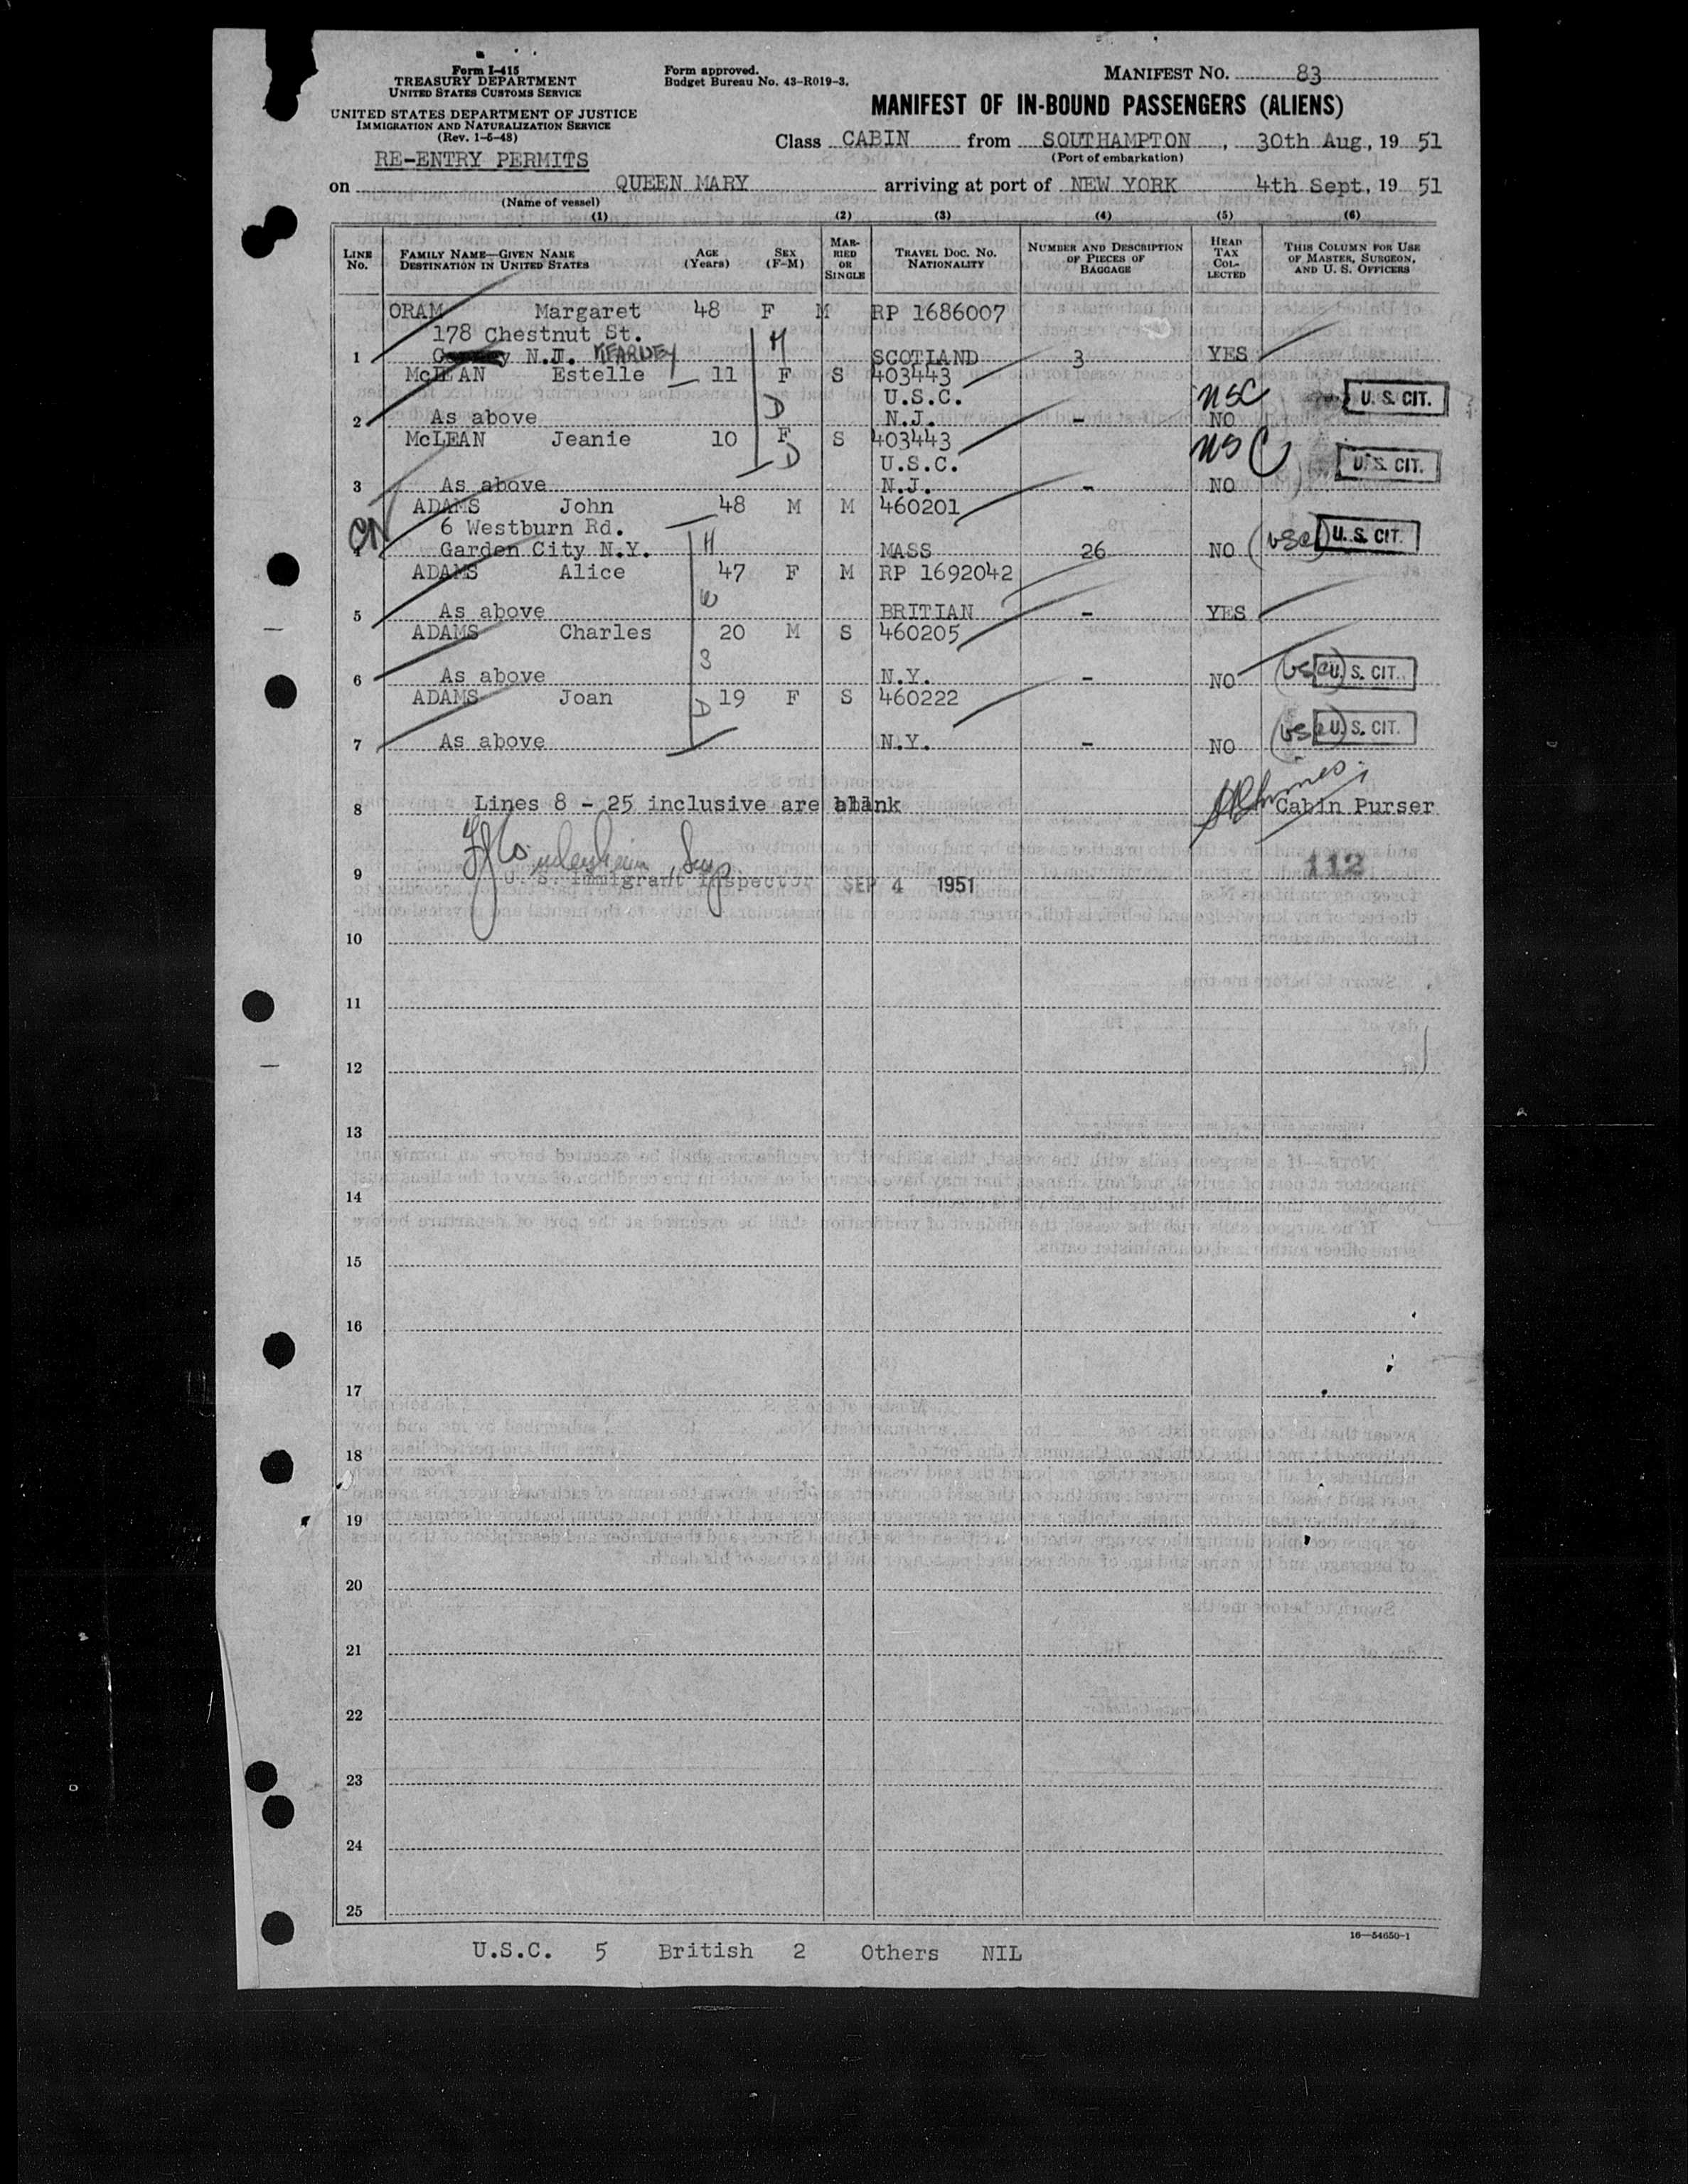 Form I-415
TREASURY DEPARTMENT
UNITED STATES CUSTOMS SERVICE
UNITED STATES DEPARTMENT OF JUSTICE
IMMIGRATION AND NATURALIZATION SERVICE
(Rev. 1-6-48)
RE-ENTRY PERMITS
Form approved.
Budget Bureau No. 43-R019-3.
MANIFEST NO. 83
MANIFEST OF IN-BOUND PASSENGERS (ALIENS)
Class CABIN from SOUTHAMPTON, 30th Aug, 19 51
(Port of embarkation)
on QUEEN MARY arriving at port of NEW YORK 4th Sept, 19 51
(Name of vessel)
(1) (2) (3) (4) (5) (6)
LINE No. FAMILY NAME—GIVEN NAME DESTINATION IN UNITED STATES AGE (Years) SEX (F-M) MARRIED OR SINGLE TRAVEL DOC. NO. NATIONALITY NUMBER AND DESCRIPTION OF PIECES OF BAGGAGE HEAD TAX COLLECTED THIS COLUMN FOR USE OF MASTER, SURGEON, AND U. S. OFFICERS
ORAM Margaret 48 F M RP 1686007
178 Chestnut St. M
1 N.J. KEARNEY SCOTLAND 3 YES
McLEAN Estelle 11 F S 403443
U.S.C. USC U. S. CIT.
2 As above D N.J. - NO
McLEAN Jeanie 10 F S 403443
D U.S.C. USC U. S. CIT.
3 As above N.J. - NO
ADAMS John 48 M M 460201
6 Westburn Rd.
4 Garden City N.Y. H MASS 26 NO (USC) U. S. CIT.
ADAMS Alice 47 F M RP 1692042
W
5 As above BRITIAN - YES
ADAMS Charles 20 M S 460205
S
6 As above N.Y. - NO (USC) U. S. CIT.
ADAMS Joan 19 F S 460222
D
7 As above N.Y. - NO (USC) U. S. CIT.
8 Lines 8 - 25 inclusive are blank Cabin Purser
112
9 U. S. Immigrant Inspector SEP 4 1951
10
11
12
13
14
15
16
17
18
19
20
21
22
23
24
25
16—54650-1
U.S.C. 5 British 2 Others NIL